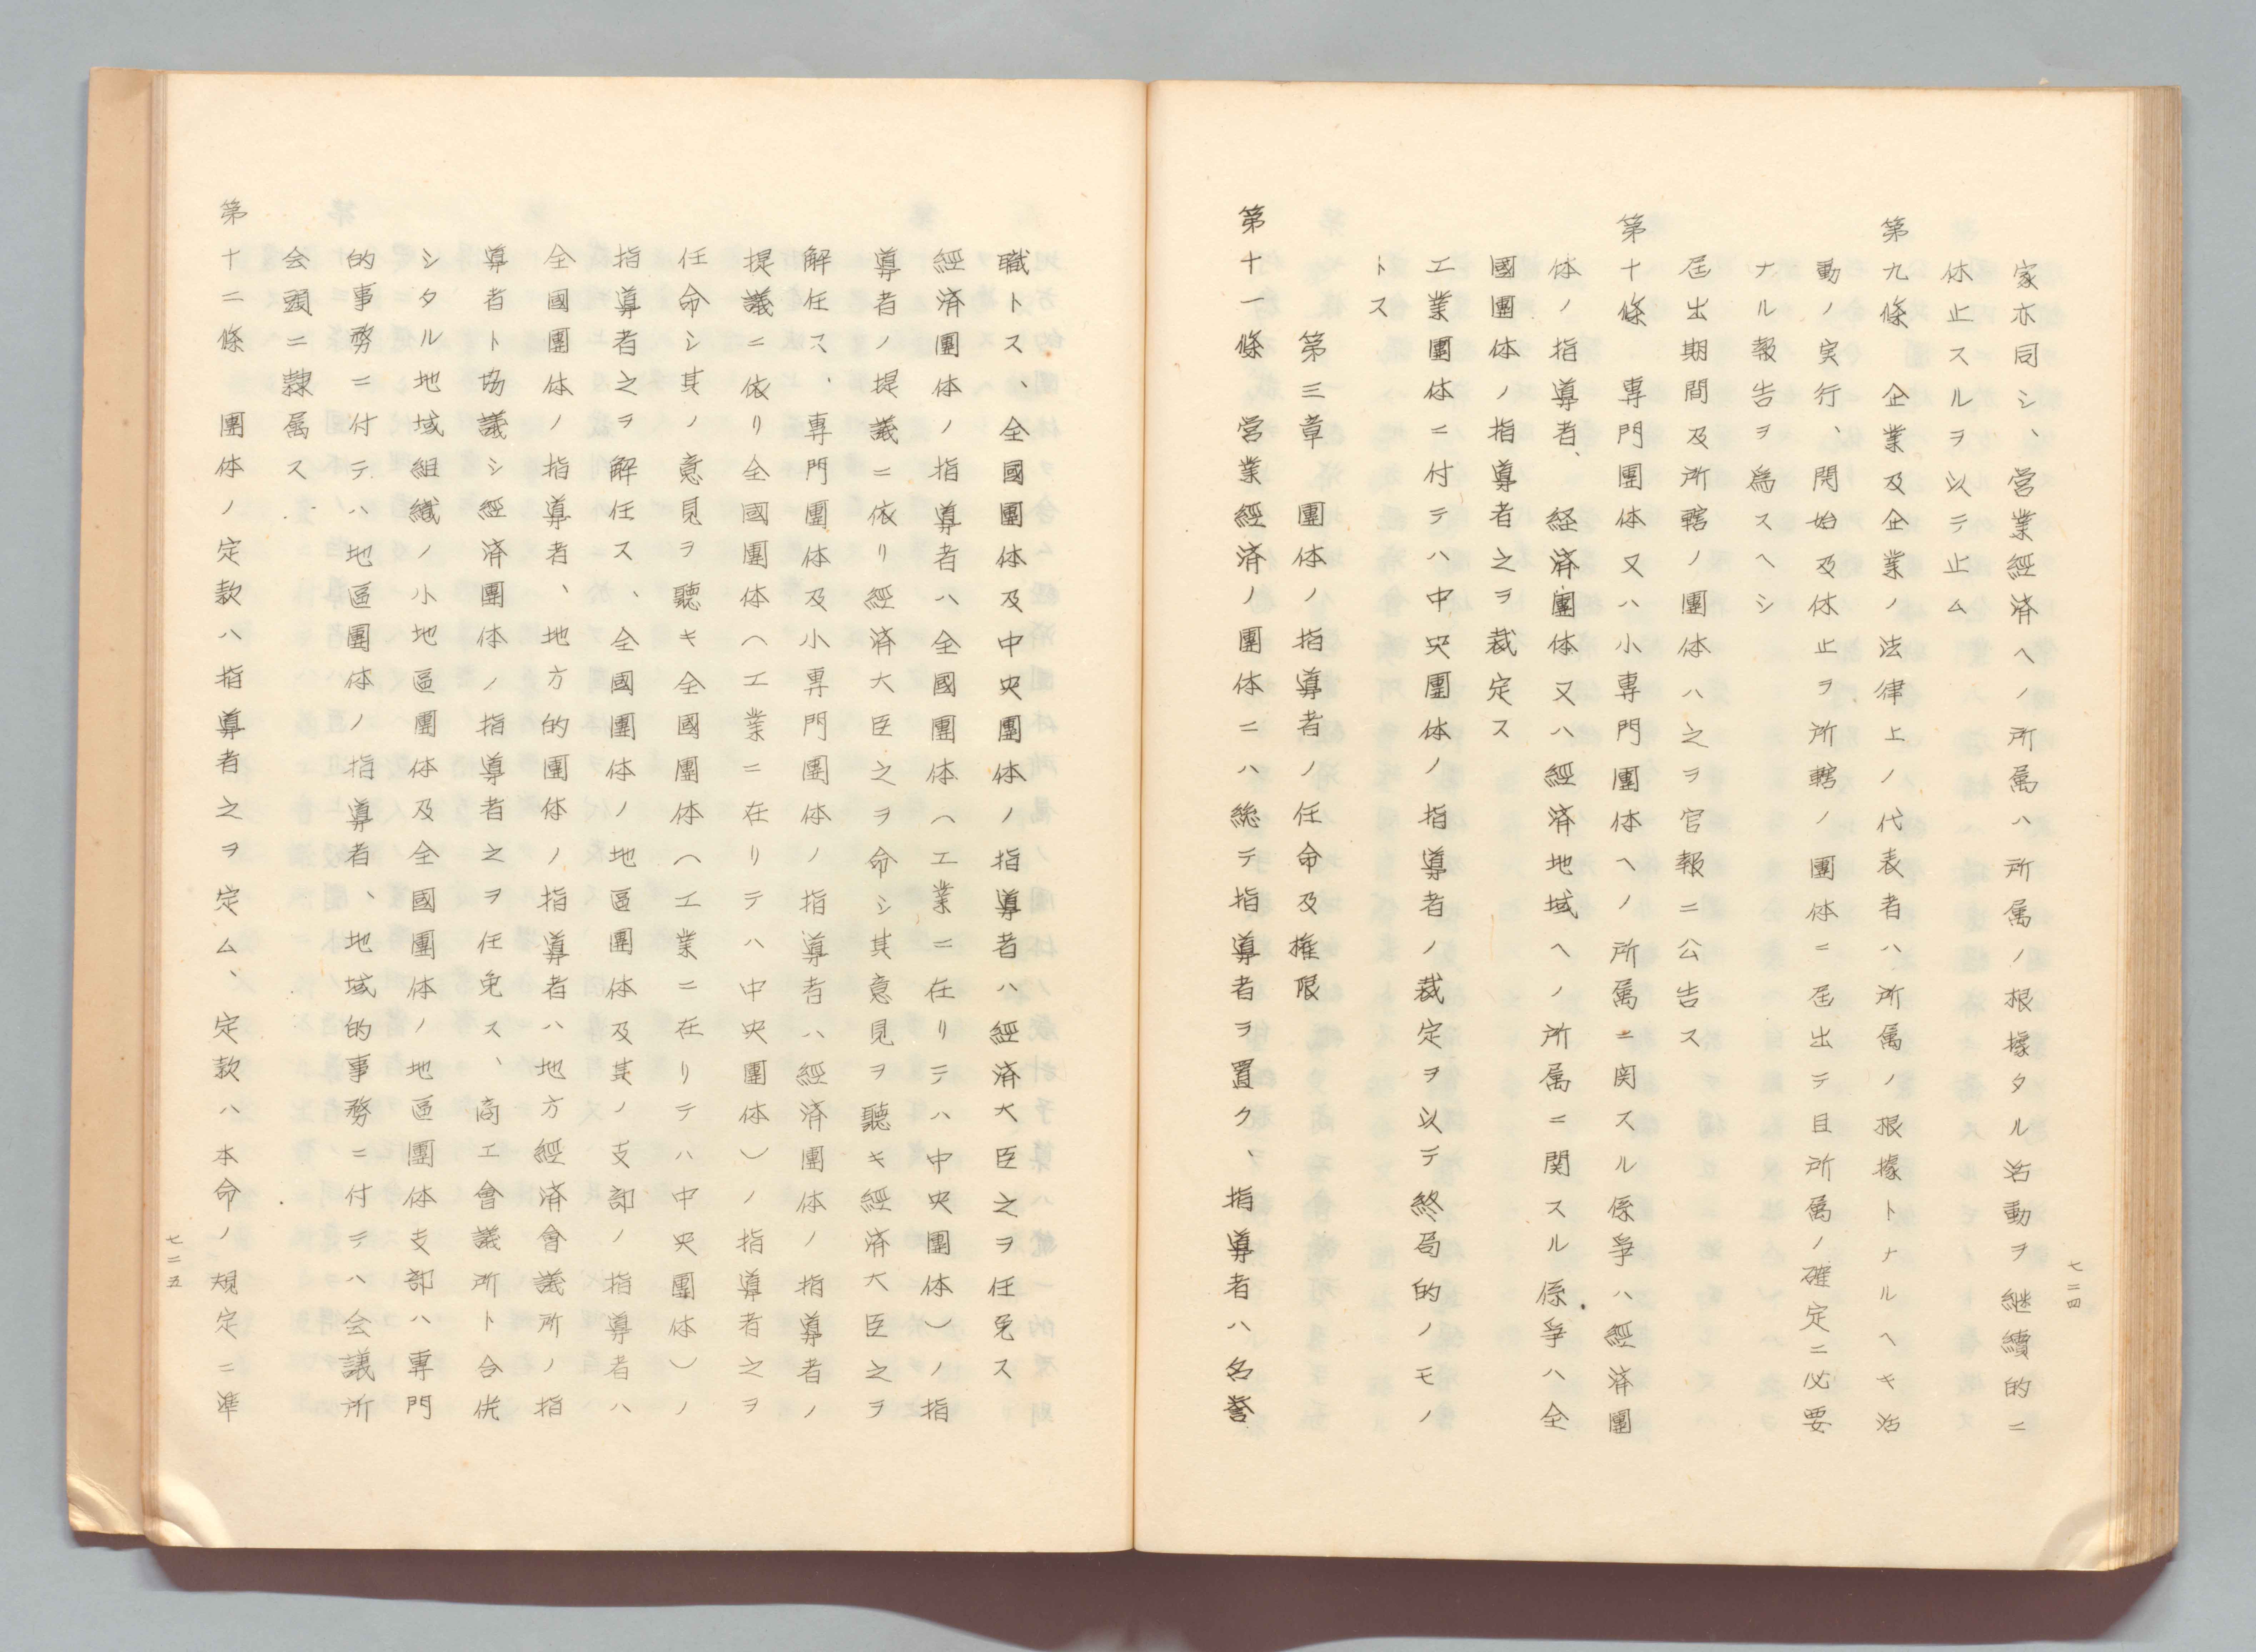 七二四
家亦同シ、営業經済ヘノ所属ハ所属ノ根據タル活動ヲ継續的ニ
休止スルヲ以テ止ム
第九條　企業及企業ノ法律上ノ代表者ハ所属ノ根據トナルヘキ活
動ノ実行、開始及休止ヲ所轄ノ團体ニ屆出テ且所属ノ確定ニ必要
ナル報告ヲ為スヘシ
屆出期間及所轄ノ團体ハ之ヲ官報ニ公告ス
第十條　専門團体又ハ小専門團体ヘノ所属ニ関スル係爭ハ經済團
体ノ指導者、経済團体又ハ經済地域ヘノ所属ニ関スル係爭ハ全
國團体ノ指導者之ヲ裁定ス
工業團体ニ付テハ中央團体ノ指導者ノ裁定ヲ以テ終局的ノモノ
トス
第三章　團体ノ指導者ノ任命及権限
第十一條　営業經済ノ團体ニハ総テ指導者ヲ置ク、指導者ハ名誉
職トス、全國團体及中央團体ノ指導者ハ經済大臣之ヲ任免ス
經済團体ノ指導者ハ全國團体（工業ニ在リテハ中央團体）ノ指
導者ノ提議ニ依リ經済大臣之ヲ命シ其意見ヲ聽キ經済大臣之ヲ
解任ス、専門團体及小専門團体ノ指導者ハ經済團体ノ指導者ノ
提議ニ依リ全國團体（工業ニ在リテハ中央團体）ノ指導者之ヲ
任命シ其ノ意見ヲ聽キ全國團体（工業ニ在リテハ中央團体）ノ
指導者之ヲ解任ス、全國團体ノ地區團体及其ノ支部ノ指導者ハ
全國團体ノ指導者、地方的團体ノ指導者ハ地方經済會議所ノ指
導者ト協議シ經済團体ノ指導者之ヲ任免ス、商工會議所ト合併
シタル地域組織ノ小地區團体及全國團体ノ地區團体支部ハ専門
的事務ニ付テハ地區團体ノ指導者、地域的事務ニ付テハ会議所
会頭ニ隷属ス
第十二條　團体ノ定款ハ指導者之ヲ定ム、定款ハ本命ノ規定ニ準
七二五